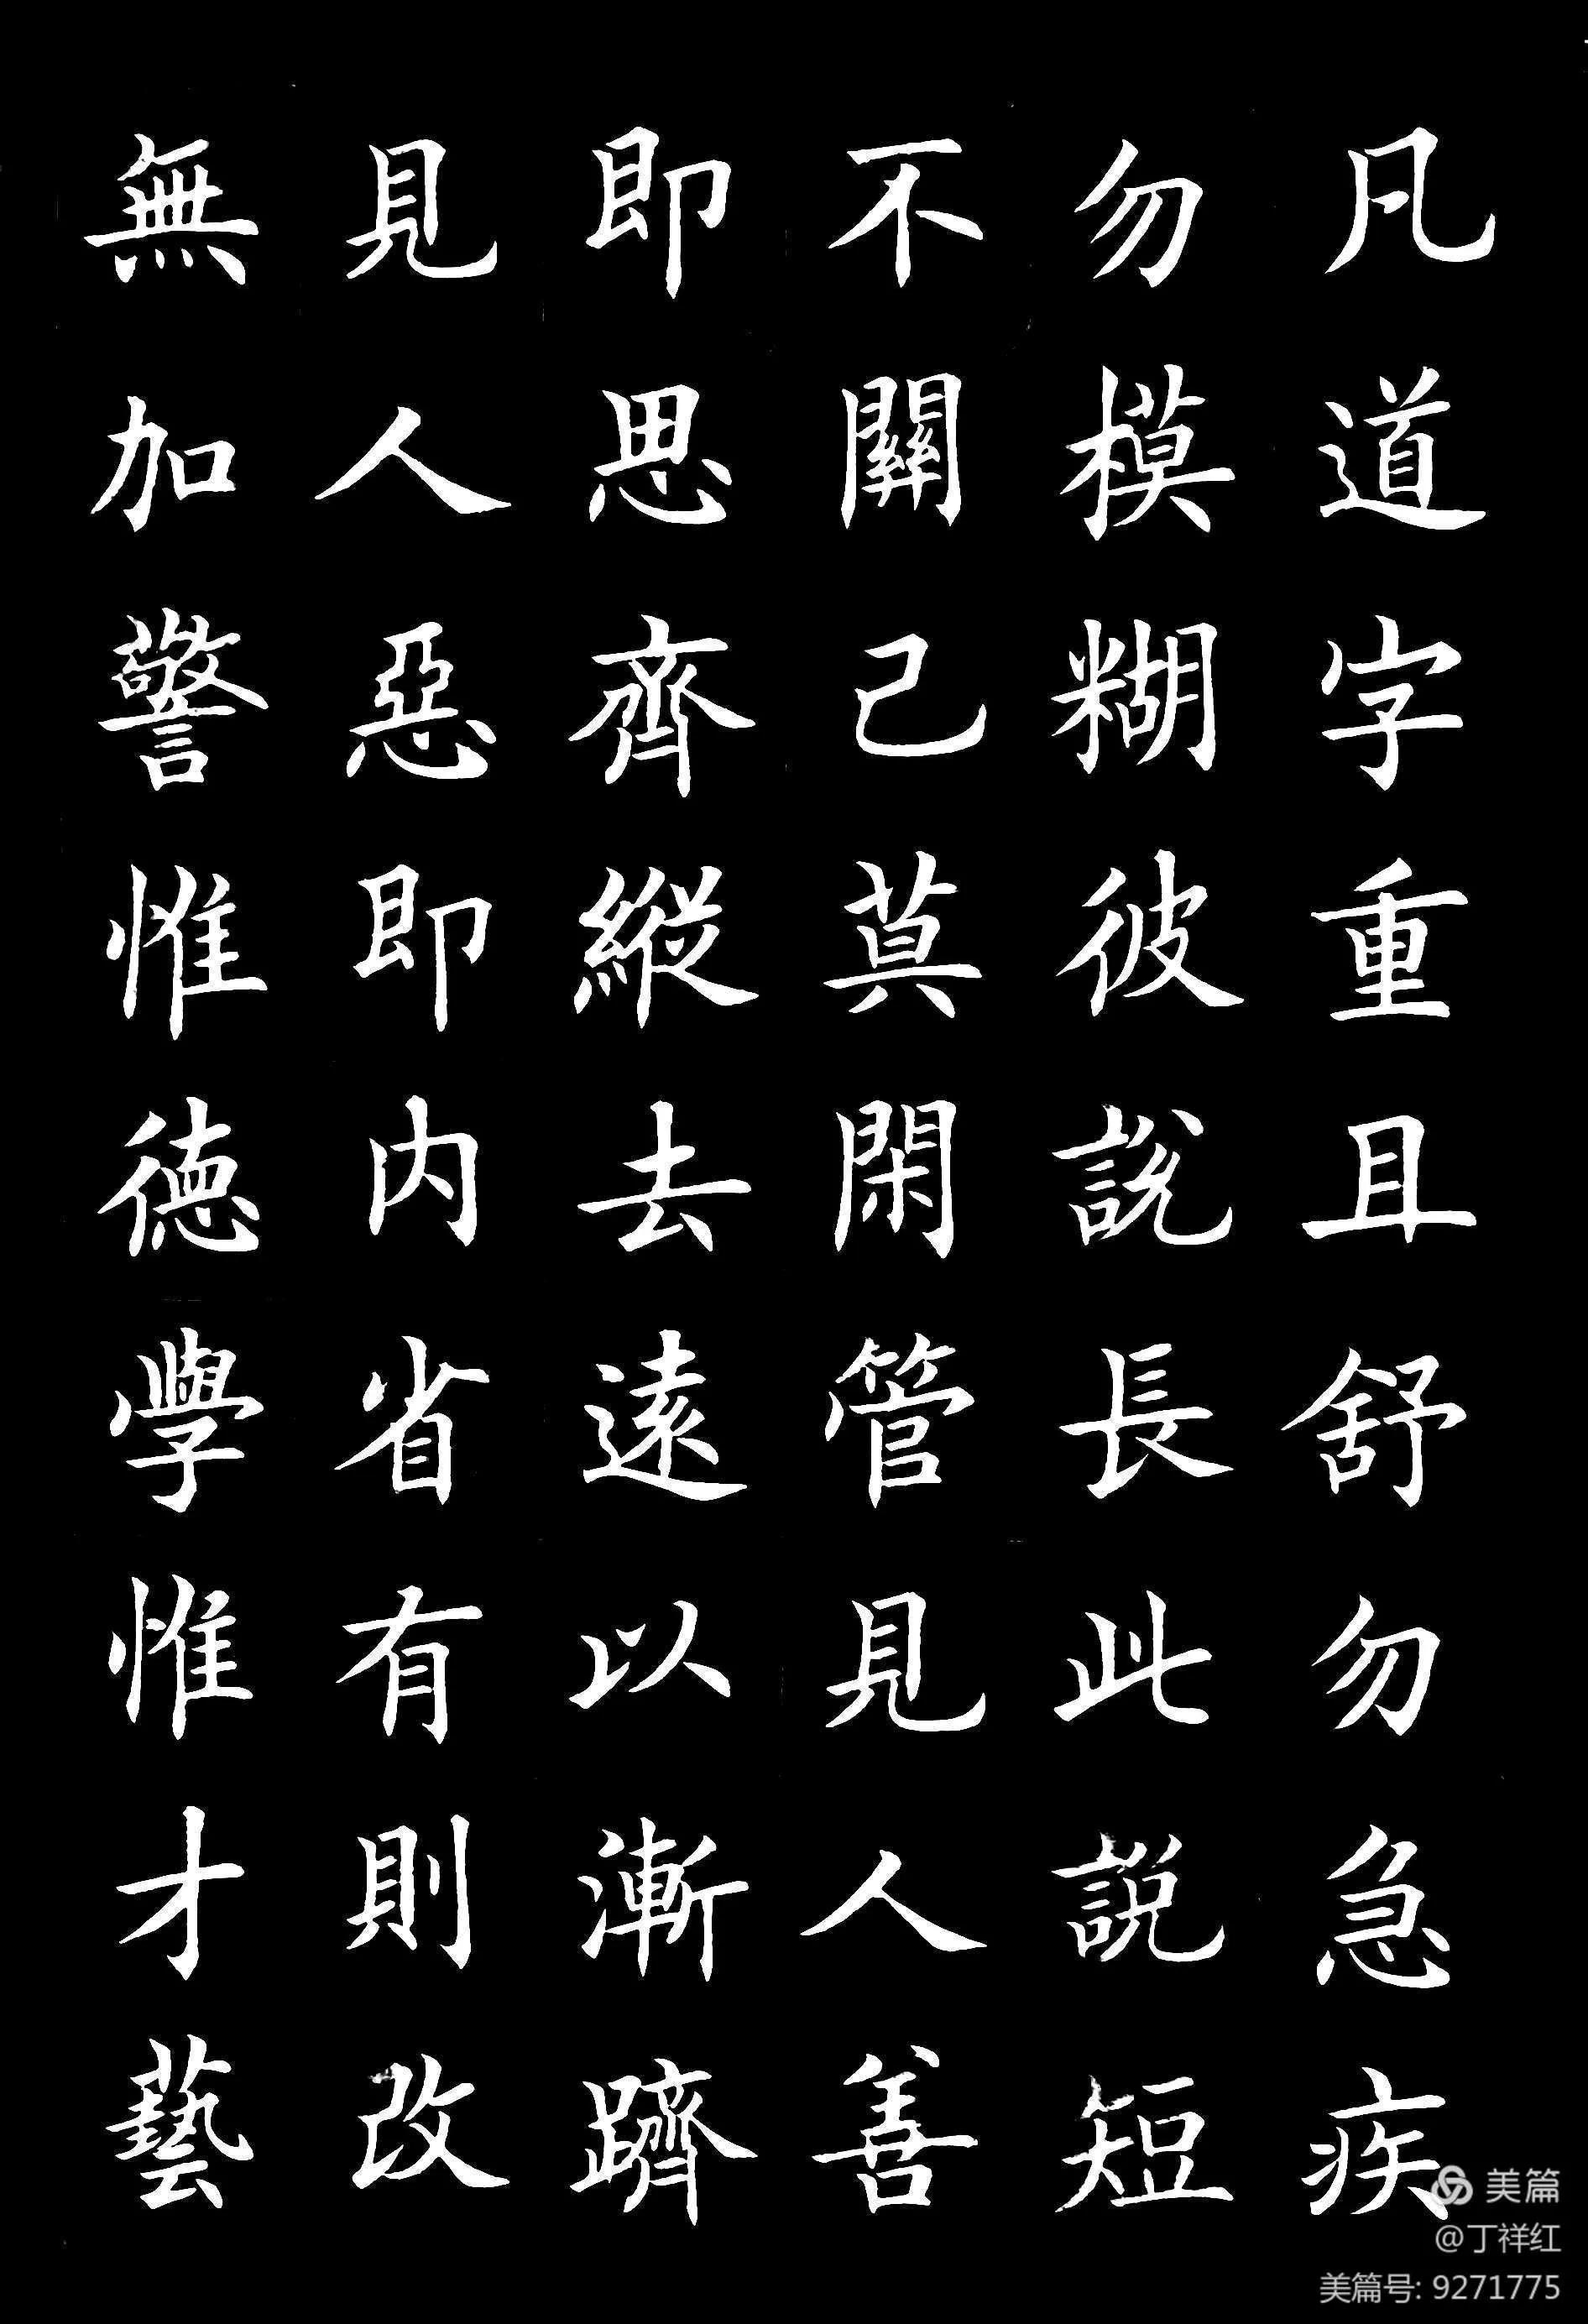 凡道字重且舒勿急疾
勿模糊彼說長此說短
不關己莫閑管見人善
即思齊縱去遠以漸躋
見人惡即内省有則改
無加警惟德學惟才藝
美篇
@丁祥红
美篇号: 9271775